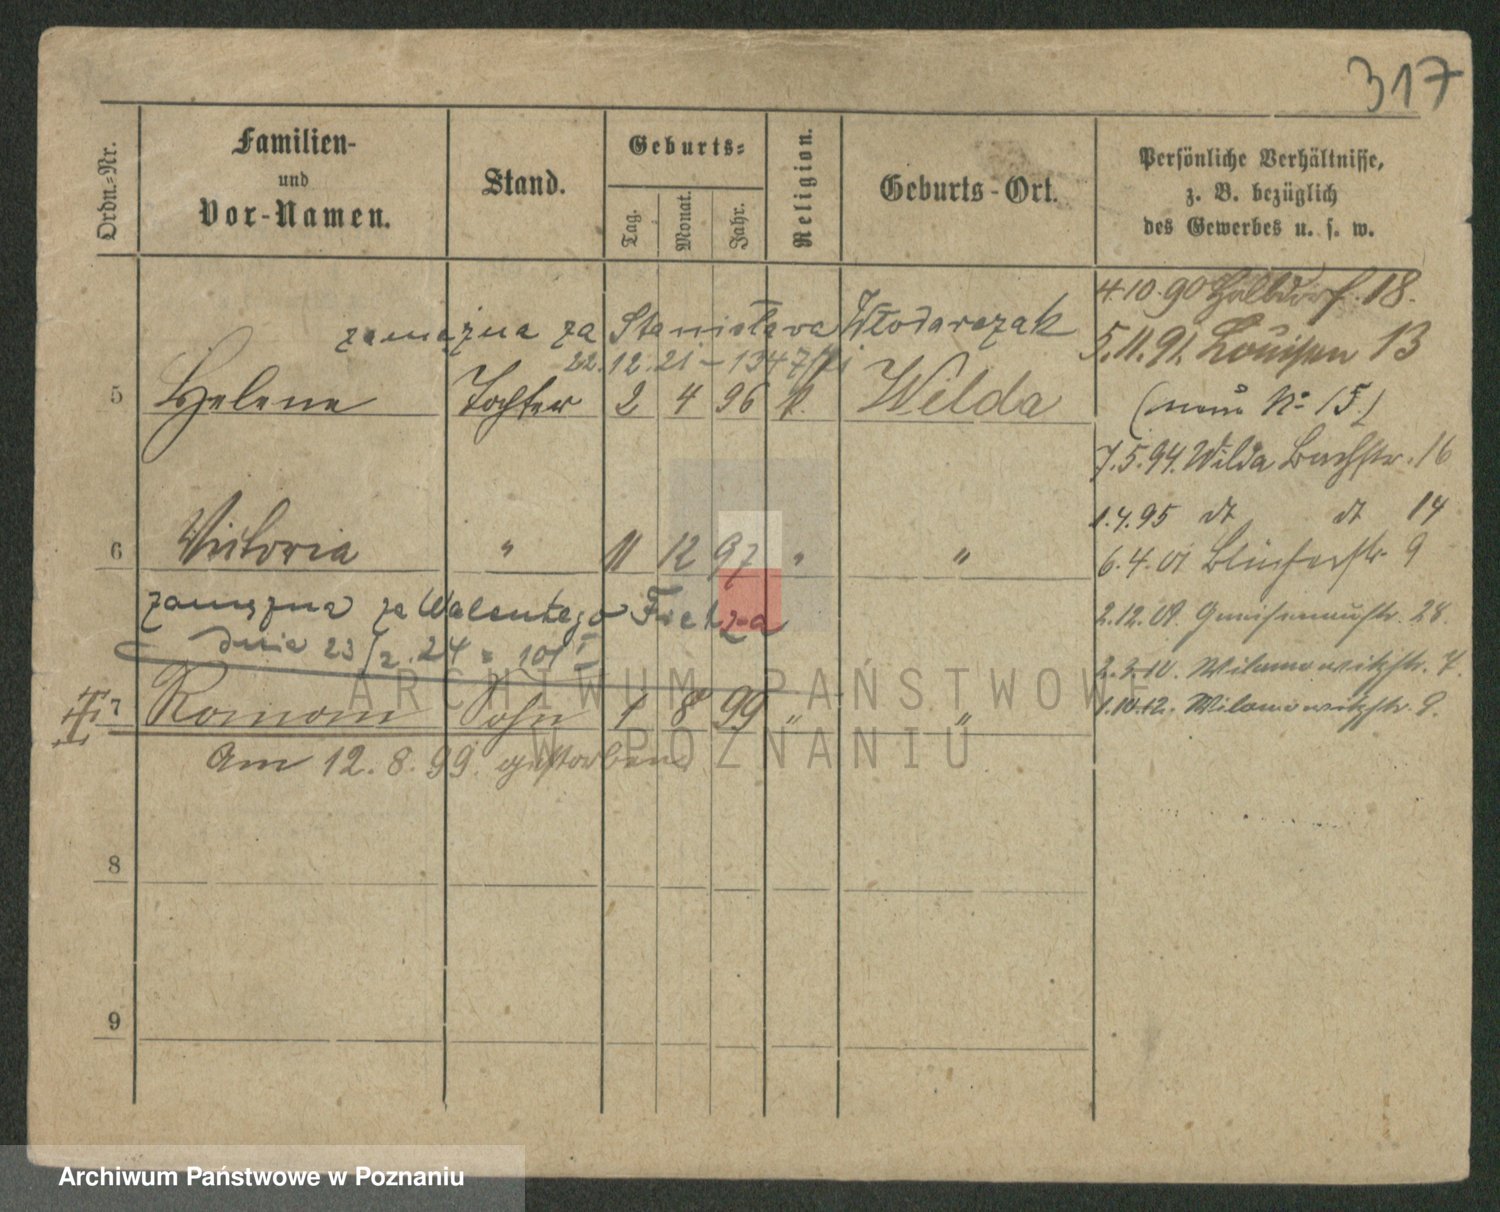 317
Ordn.-Nr.
Familien-
und
Vor-Namen.
Stand.
Geburts-
Tag.
Monat.
Jahr.
Religion.
Geburts-Ort.
Persönliche Verhältnisse,
z. B. bezüglich
des Gewerbes u. s. w.
zamężna za Stanisława Włodarczak
22.12.21 - 1347/
5 Helene Tochter 2 4 96 k. Wilda
6 Victoria " 11 12 97 " "
zamężna za Walentego Fietza
dnia 23/2.24 = 101
7 Roman Sohn 1 8 99 " "
Am 12.8.99 gestorben
8
9
4.10.90 18.
5.11.91. Louisen 13
(neue No 15.)
7.5.94. Wilda Bachstr. 16
1.4.95 dt dt 14
6.4.01 Blücherstr 9
2.12.01. Gneisenaustr. 28.
2.3.10. Wilamowitzstr. 7.
1.10.12. Wilamowitzstr. 9.
ARCHIWUM PAŃSTWOWE
W POZNANIU
Archiwum Państwowe w Poznaniu